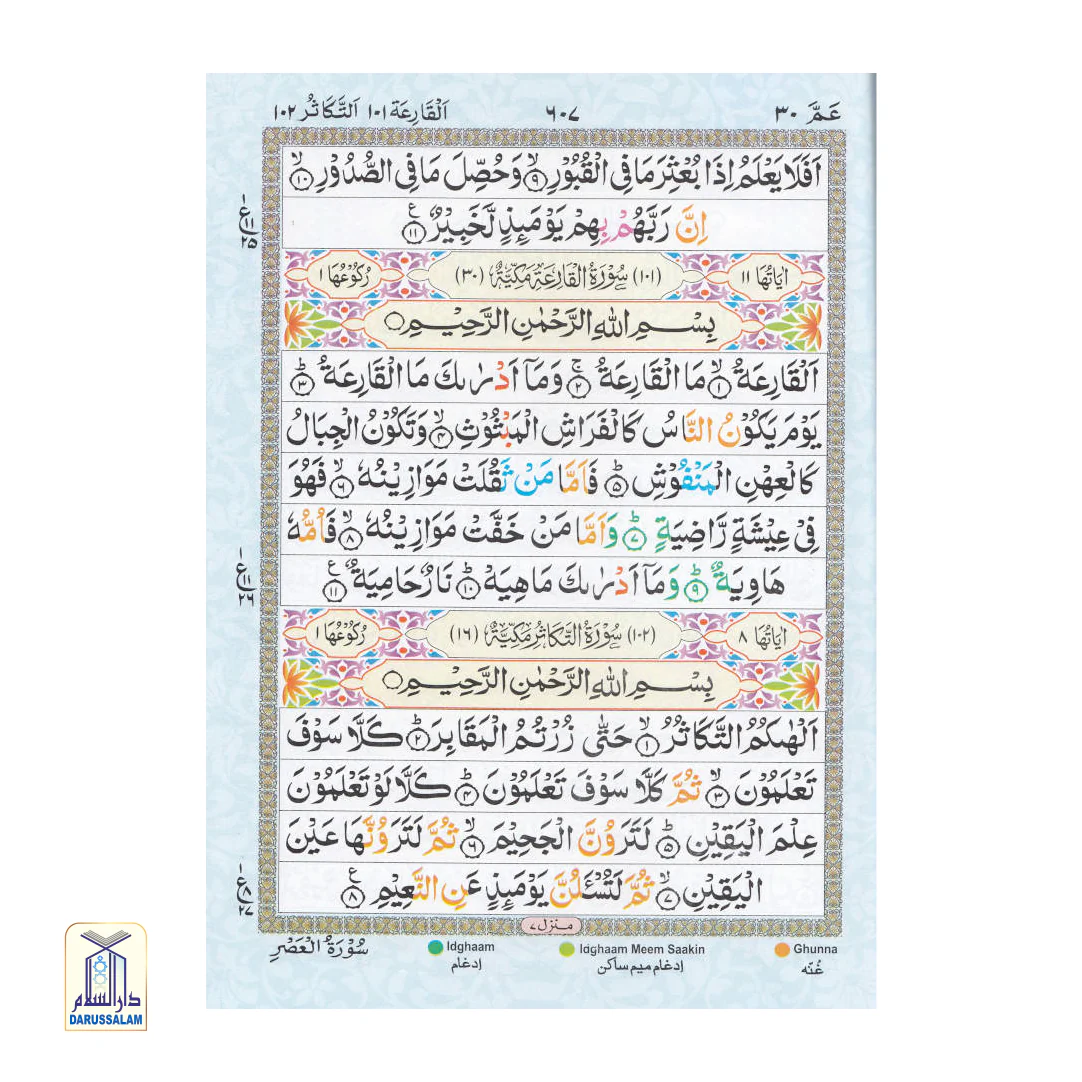 عَمَّ ٣٠ ٦٠٧ اَلْقَارِعَة ١٠١ اَلتَّكَاثُر ١٠٢
اَفَلَا يَعْلَمُ اِذَا بُعْثِرَ مَا فِی الْقُبُوْرِ ۙ۹ وَحُصِّلَ مَا فِی الصُّدُوْرِ ۙ۱۰
اِنَّ رَبَّهُمْ بِهِمْ يَوْمَئِذٍ لَّخَبِيْرٌ ۱۱ ع
ع ١ ١١ ٢٥
اٰيَاتُهَا ١١ (١٠١) سُوْرَةُ الْقَارِعَةِ مَكِّيَّةٌ (٣٠) رُكُوْعُهَا ١
بِسْمِ اللّٰهِ الرَّحْمٰنِ الرَّحِيْمِ
اَلْقَارِعَةُ ۙ۱ مَا الْقَارِعَةُ ۚ۲ وَمَاۤ اَدْرٰىكَ مَا الْقَارِعَةُ ؕ۳
يَوْمَ يَكُوْنُ النَّاسُ كَالْفَرَاشِ الْمَبْثُوْثِ ۙ۴ وَتَكُوْنُ الْجِبَالُ
كَالْعِهْنِ الْمَنْفُوْشِ ؕ۵ فَاَمَّا مَنْ ثَقُلَتْ مَوَازِيْنُهٗ ۙ۶ فَهُوَ
فِیْ عِيْشَةٍ رَّاضِيَةٍ ؕ۷ وَاَمَّا مَنْ خَفَّتْ مَوَازِيْنُهٗ ۙ۸ فَاُمُّهٗ
هَاوِيَةٌ ؕ۹ وَمَاۤ اَدْرٰىكَ مَا هِيَهْ ؕ۱۰ نَارٌ حَامِيَةٌ ۱۱ ع
ع ١ ١١ ٢٦
اٰيَاتُهَا ٨ (١٠٢) سُوْرَةُ التَّكَاثُرِ مَكِّيَّةٌ (١٦) رُكُوْعُهَا ١
بِسْمِ اللّٰهِ الرَّحْمٰنِ الرَّحِيْمِ
اَلْهٰىكُمُ التَّكَاثُرُ ۙ۱ حَتّٰى زُرْتُمُ الْمَقَابِرَ ؕ۲ كَلَّا سَوْفَ
تَعْلَمُوْنَ ۙ۳ ثُمَّ كَلَّا سَوْفَ تَعْلَمُوْنَ ؕ۴ كَلَّا لَوْ تَعْلَمُوْنَ
عِلْمَ الْيَقِيْنِ ؕ۵ لَتَرَوُنَّ الْجَحِيْمَ ۙ۶ ثُمَّ لَتَرَوُنَّهَا عَيْنَ
الْيَقِيْنِ ۙ۷ ثُمَّ لَتُسْـَٔلُنَّ يَوْمَئِذٍ عَنِ النَّعِيْمِ ۸ ع
ع ١ ٨ ٢٧
منزل ٧
Idghaam Idghaam Meem Saakin Ghunna
غُنّه إدغام ميم ساكن إدغام
سُوْرَةُ الْعَصْرِ
دار السلام
DARUSSALAM